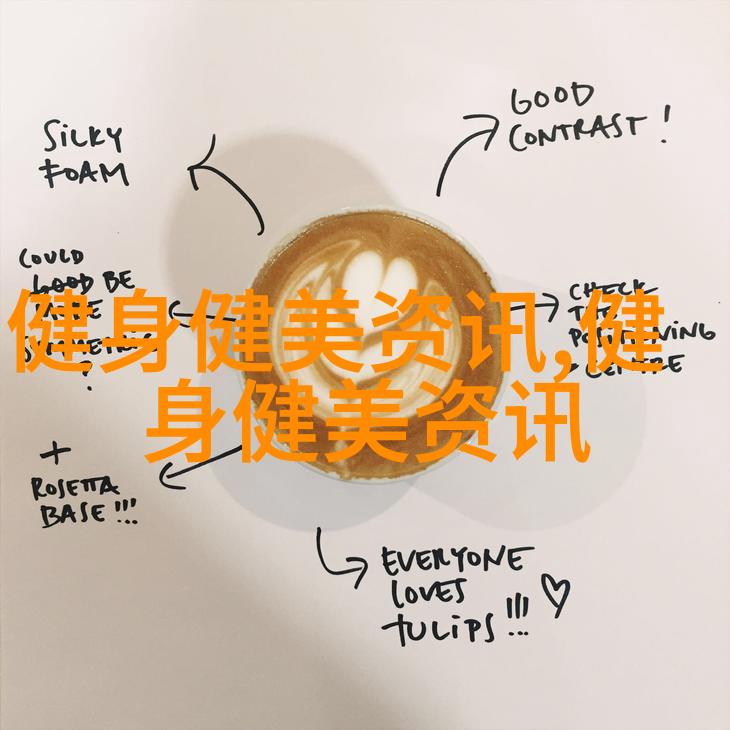 SILKY
FOAM
GOOD
CONTRAST!
COULD
GOOD BE
?
CHECK
POSITIONING
CENTRE
健身健美资讯,健
身健美资讯
+
ROSETTA
BASE!!!
EVERYONE
LOVES
TULIPS!!! ♡